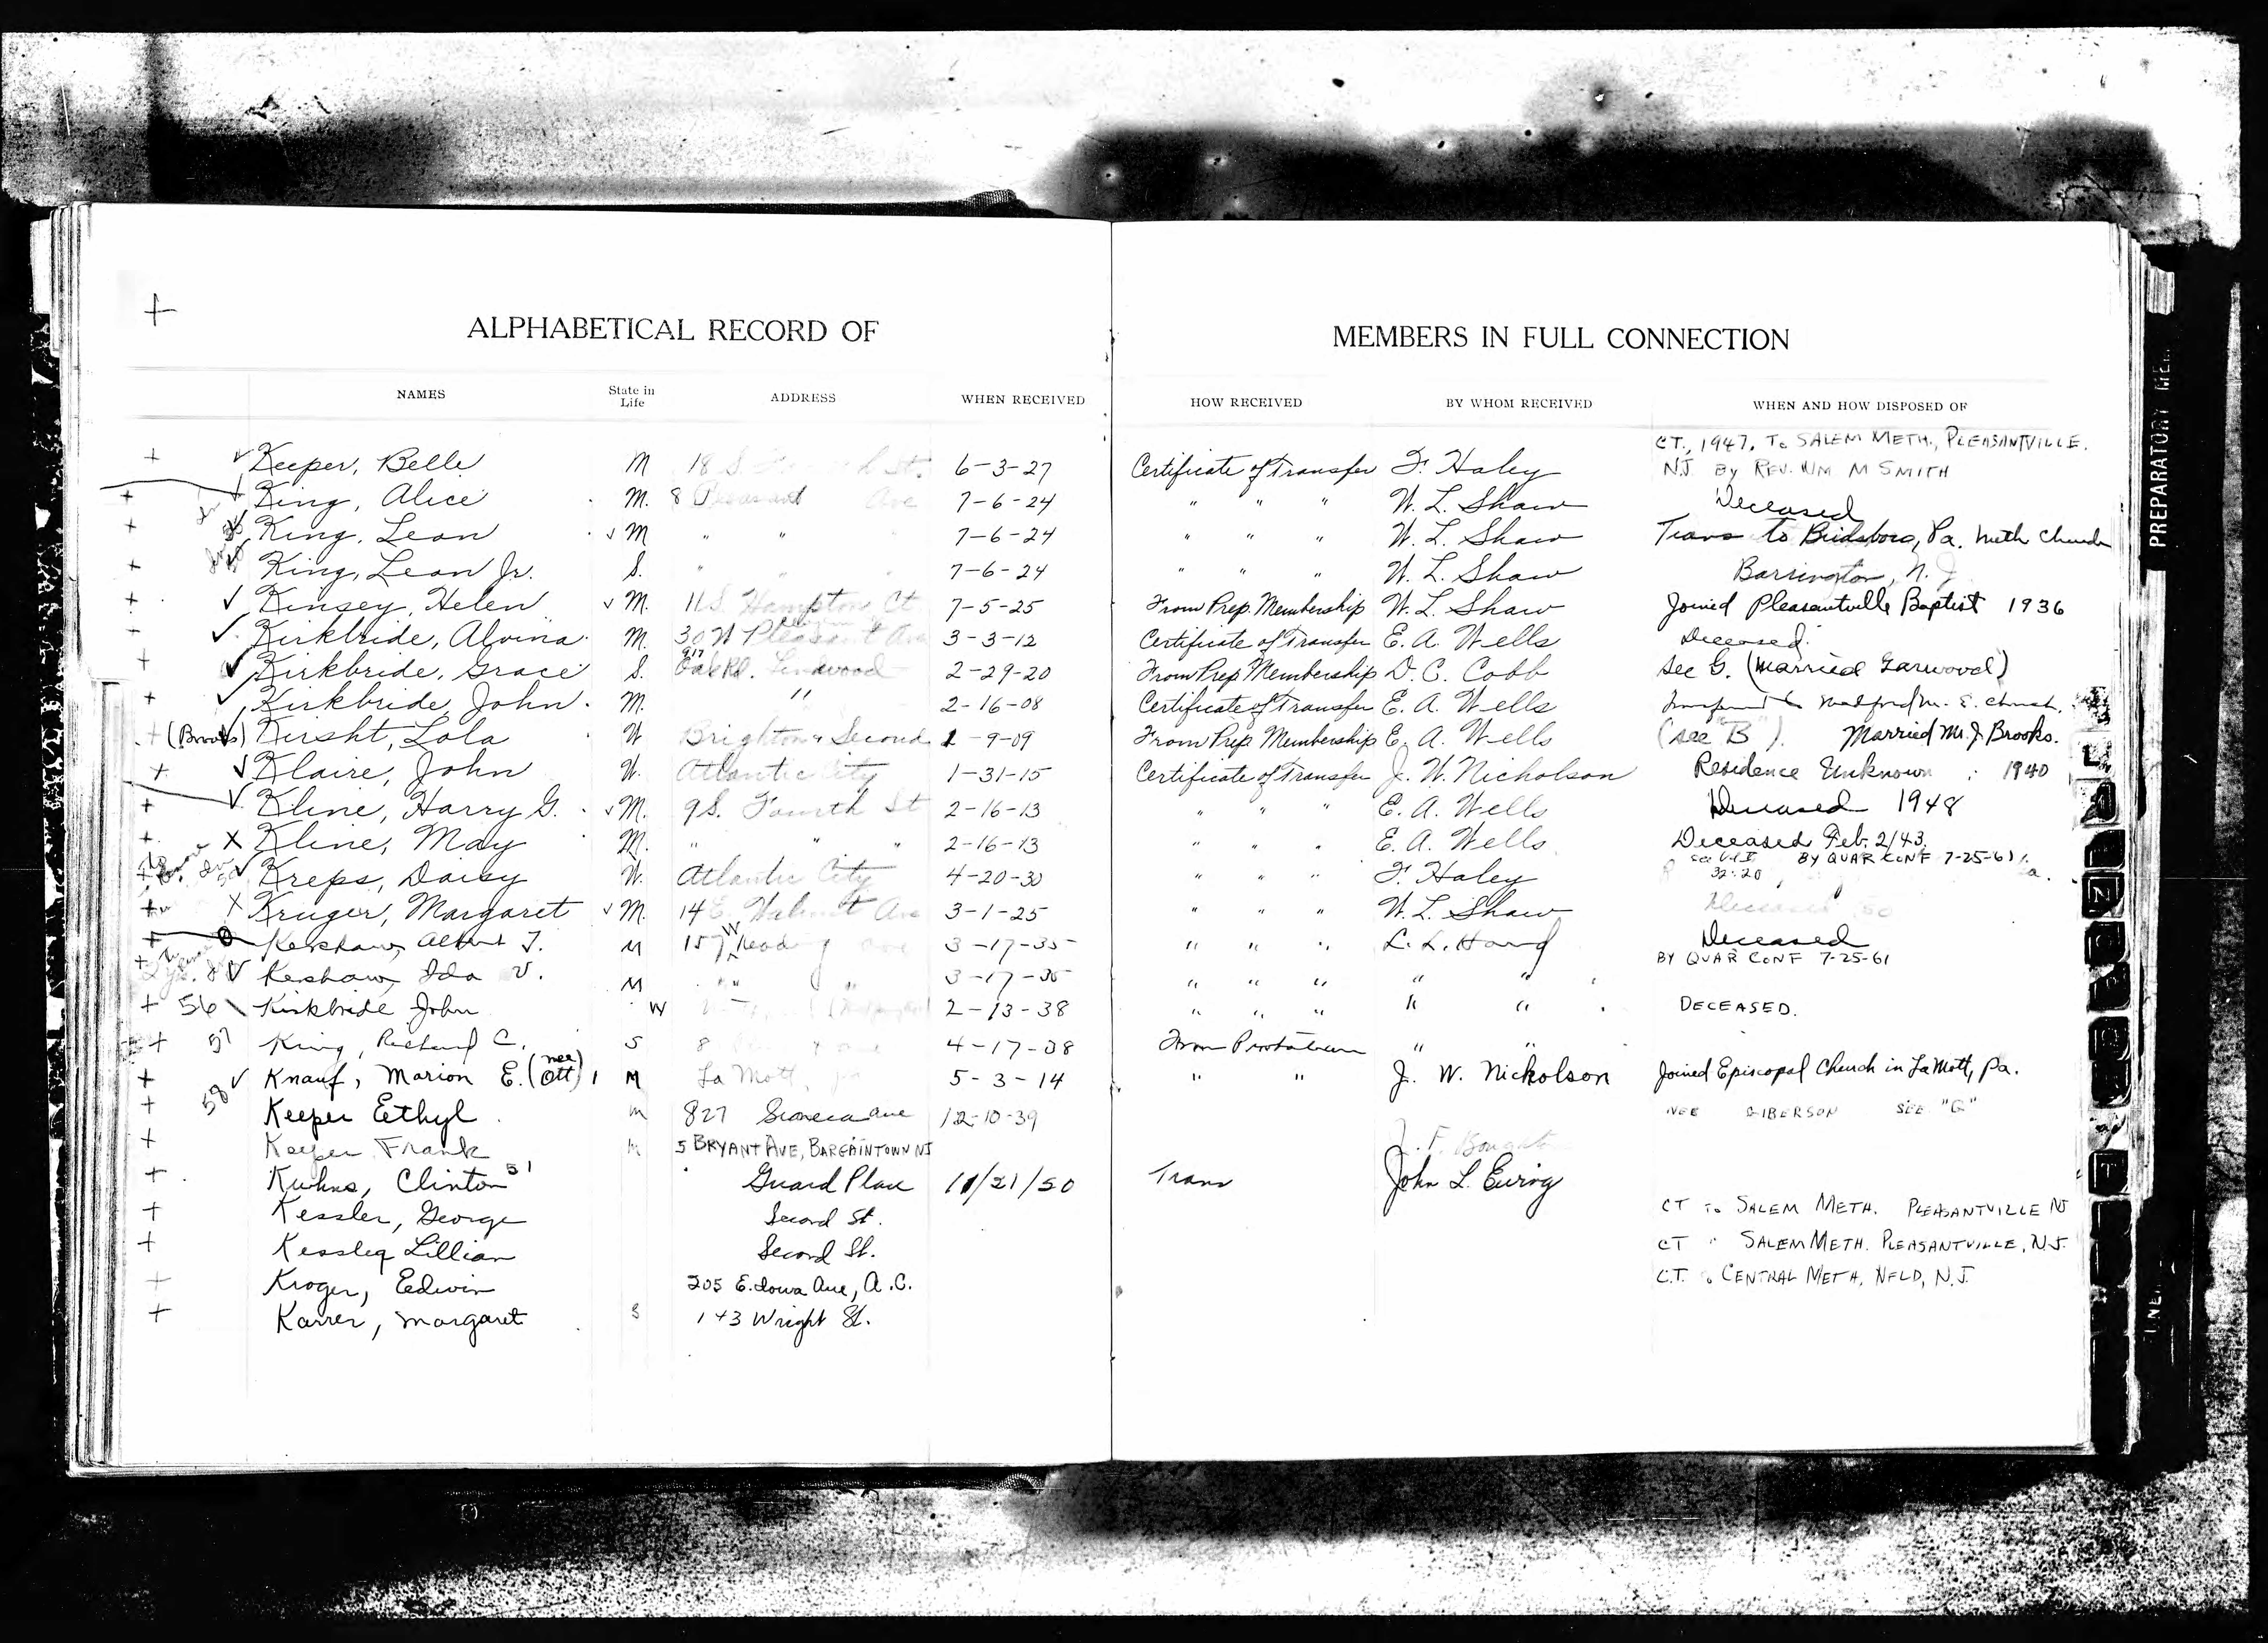 ALPHABETICAL RECORD OF MEMBERS IN FULL CONNECTION
NAMES State in Life ADDRESS WHEN RECEIVED HOW RECEIVED BY WHOM RECEIVED WHEN AND HOW DISPOSED OF
CT., 1947. To SALEM METH., PLEASANTVILLE.
+ ✓ Keeper, Belle M 18 S. St. 6-3-27 Certificate of Transfer F. Haley NJ By REV. WM M SMITH
+ King, Alice M. 8 Pleasant Ave 7-6-24 " " " W. L. Shaw Deceased
+ King, Leon ✓ M " " 7-6-24 " " " W. L. Shaw Trans to Birdsboro, Pa. Meth Church
+ King, Leon Jr. S. " " " 7-6-24 " " " W. L. Shaw Barrington, N. J.
+ ✓ Kinsey, Helen ✓ M. 11 S. Hampton Ct 7-5-25 From Prep. Membership W. L. Shaw Joined Pleasantville Baptist 1936
- ✓ Kirkbride, Alvina M. 30 W Pleasant Ave 3-3-12 Certificate of Transfer E. A. Wells Deceased.
+ ✓ Kirkbride, Grace S. 917 Oak Rd. Lindwood 2-29-20 From Prep Membership D. C. Cobb see G. (Married Garwood)
+ ✓ Kirkbride, John M. " 2-16-08 Certificate of Transfer E. A. Wells Medford M. E. Church.
+ (Brooks) Kirsht, Lola W Brighton & Second 1-9-09 From Prep. Membership E. A. Wells (see "B"). Married Mr. J. Brooks.
+ ✓ Klaire, John W. Atlantic City 1-31-15 Certificate of Transfer J. W. Nicholson Residence Unknown : 1940
+ ✓ Kline, Harry G. ✓ M. 9 S. Fourth St 2-16-13 " " " E. A. Wells Deceased 1948
+ X Kline, May M. " " " 2-16-13 " " " E. A. Wells Deceased Feb. 2/43.
BY QUAR CONF 7-25-61
Kreps, Daisy W. Atlantic City 4-20-30 " " " F. Haley 32:20
+ X Kruger, Margaret ✓ M. 14 E. Walnut Ave 3-1-25 " " " W. L. Shaw Deceased 50
+ Kershaw, Albert J. M 157 W Reading ave 3-17-35 " " " L. L. Hand Deceased
BY QUAR CONF 7-25-61
Kershaw, Ida V. M " " 3-17-35 " " " " "
+ 56 Kirkbride John W 2-13-38 " " " " " DECEASED.
+ 57 King, Richard C. S 8 4-17-38 From Probation " "
+ ✓ Knauf, Marion E. (nee Ott) M La Mott, Pa 5-3-14 " " J. W. Nickolson Joined Episcopal Church in La Mott, Pa.
+ 50 Keeper Eethyl M 827 Seneca ave 12-10-39 NEE GIBERSON SEE "G"
+ Keeper Frank M 5 BRYANT AVE, BARGAINTOWN NJ J. F.
+ Kuhns, Clinton 51 Guard Place 11/21/50 Trans John L. Ewing
+ Kessler, George Second St. CT To SALEM METH. PLEASANTVILLE NJ
+ Kessler Lillian Second St. CT " SALEM METH. PLEASANTVILLE, N.J.
+ Kroger, Eedwin 205 E. Iowa Ave, A.C. C.T. To CENTRAL METH, NFLD, N.J.
+ Karrer, Margaret S 143 Wright St.
PREPARATORY ME